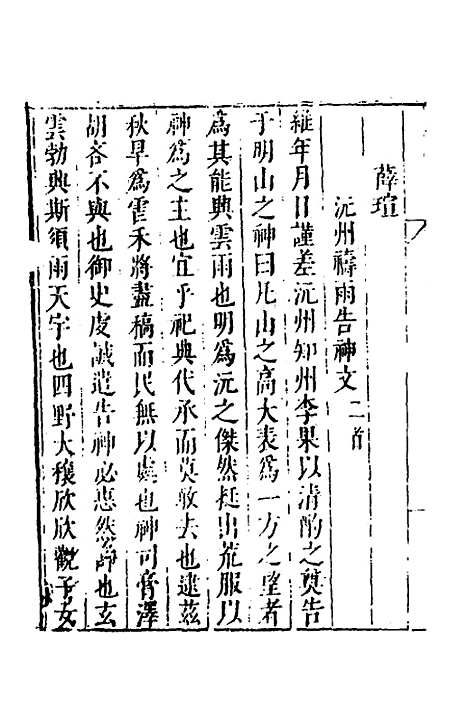 薛瑄
沅州禱雨告神文二首
維年月日謹差沅州知州李杲以清酌之奠告
于明山之神曰凡山之高大表爲一方之望者
爲其能興雲雨也明爲沅之傑然挺出荒服以
神爲之主也宜乎祀典代承而莫敢去也逮茲
秋旱爲雹禾將盡稿而民無以處也神司膏澤
胡吝不與也御史皮誠遣告神必惠然歸也玄
雲勃興斯須雨天宇也四野大穰欣欣觀子女